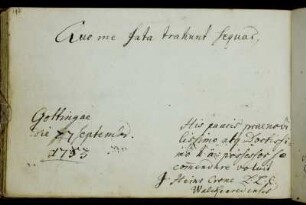 Quo me fata trahunt sequar.
Gottingae
die 27 Septembr.
1753
His paucis praenobi-
lissimo atq Doctissi-
mo h. m. possessori se
comendare voluit
J Heinr Crone